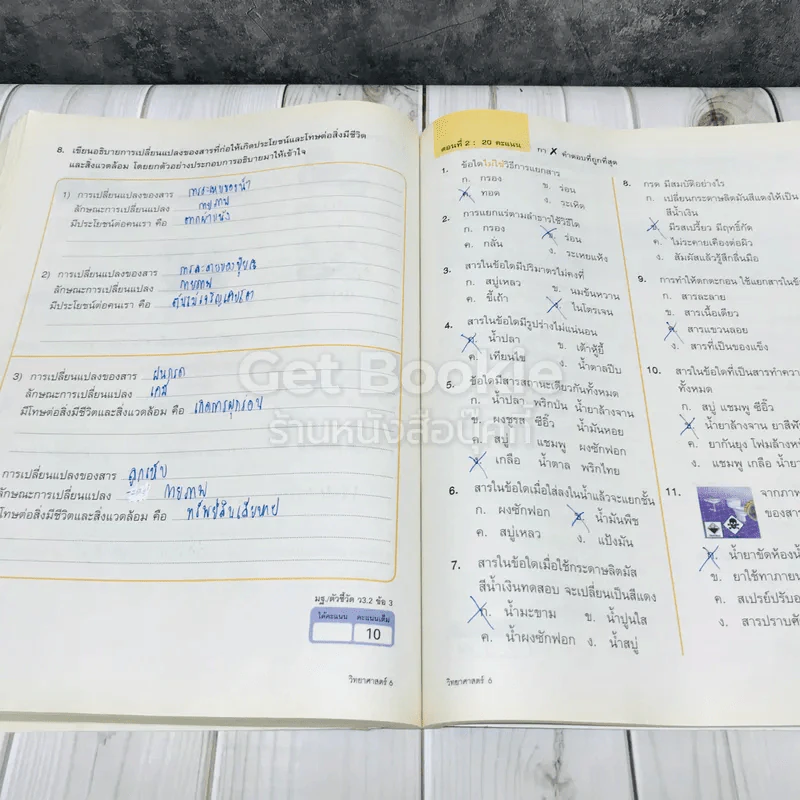 8. เขียนอธิบายการเปลี่ยนแปลงของสารที่ก่อให้เกิดประโยชน์และโทษต่อสิ่งมีชีวิต
และสิ่งแวดล้อม โดยยกตัวอย่างประกอบการอธิบายมาให้เข้าใจ
1) การเปลี่ยนแปลงของสาร
ลักษณะการเปลี่ยนแปลง กายภาพ
มีประโยชน์ต่อคนเรา คือ ตากผ้าแห้ง
2) การเปลี่ยนแปลงของสาร
ลักษณะการเปลี่ยนแปลง กายภาพ
มีประโยชน์ต่อคนเรา คือ
3) การเปลี่ยนแปลงของสาร ฝนกรด
ลักษณะการเปลี่ยนแปลง เคมี
มีโทษต่อสิ่งมีชีวิตและสิ่งแวดล้อม คือ เกิดการผุกร่อน
การเปลี่ยนแปลงของสาร ลูกเห็บ
ลักษณะการเปลี่ยนแปลง กายภาพ
โทษต่อสิ่งมีชีวิตและสิ่งแวดล้อม คือ ทรัพย์สินเสียหาย
มฐ./ตัวชี้วัด ว3.2 ข้อ 3
ได้คะแนน คะแนนเต็ม
10
วิทยาศาสตร์ 6
ตอนที่ 2 : 20 คะแนน
กา X คำตอบที่ถูกที่สุด
1. ข้อใดไม่ใช่วิธีการแยกสาร
ก. กรอง ข. ร่อน
ค. ทอด ง. ระเหิด
2. การแยกแร่ตามลำธารใช้วิธีใด
ก. กรอง ข. ร่อน
ค. กลั่น ง. ระเหยแห้ง
3. สารในข้อใดมีปริมาตรไม่คงที่
ก. สบู่เหลว ข. นมข้นหวาน
ค. ขี้เถ้า ง. ไนโตรเจน
4. สารในข้อใดมีรูปร่างไม่แน่นอน
ก. น้ำปลา ข. เต้าหู้ยี้
ค. เทียนไข ง. น้ำตาลปีบ
5. ข้อใดมีสารสถานะเดียวกันทั้งหมด
ก. น้ำปลา พริกป่น น้ำยาล้างจาน
ข. ผงชูรส ซีอิ๊ว น้ำมันหอย
ค. สบู่ แชมพู ผงซักฟอก
ง. เกลือ น้ำตาล พริกไทย
6. สารในข้อใดเมื่อใส่ลงในน้ำแล้วจะแยกชั้น
ก. ผงซักฟอก ข. น้ำมันพืช
ค. สบู่เหลว ง. แป้งมัน
7. สารในข้อใดเมื่อใช้กระดาษลิตมัส
สีน้ำเงินทดสอบ จะเปลี่ยนเป็นสีแดง
ก. น้ำมะขาม ข. น้ำปูนใส
ค. น้ำผงซักฟอก ง. น้ำสบู่
วิทยาศาสตร์ 6
8. กรด มีสมบัติอย่างไร
ก. เปลี่ยนกระดาษลิตมัสสีแดงให้เป็น
สีน้ำเงิน
ข. มีรสเปรี้ยว มีฤทธิ์กัด
ค. ไม่ระคายเคืองต่อผิว
ง. สัมผัสแล้วรู้สึกลื่นมือ
9. การทำให้ตกตะกอน ใช้แยกสารในข้อใด
ก. สารละลาย
ข. สารเนื้อเดียว
ค. สารแขวนลอย
ง. สารที่เป็นของแข็ง
10. สารในข้อใดที่เป็นสารทำความ
ทั้งหมด
ก. สบู่ แชมพู ซีอิ๊ว
ข. น้ำยาล้างจาน ยาสีฟัน
ค. ยากันยุง โฟมล้างหน้า
ง. แชมพู เกลือ น้ำยา
11. จากภาพ
ของสาร
ก. น้ำยาขัดห้องน้ำ
ข. ยาใช้ทาภายน
ค. สเปรย์ปรับอ
ง. สารปราบศั
Get Bookie
ร้านหนังสือบุ๊คกี้